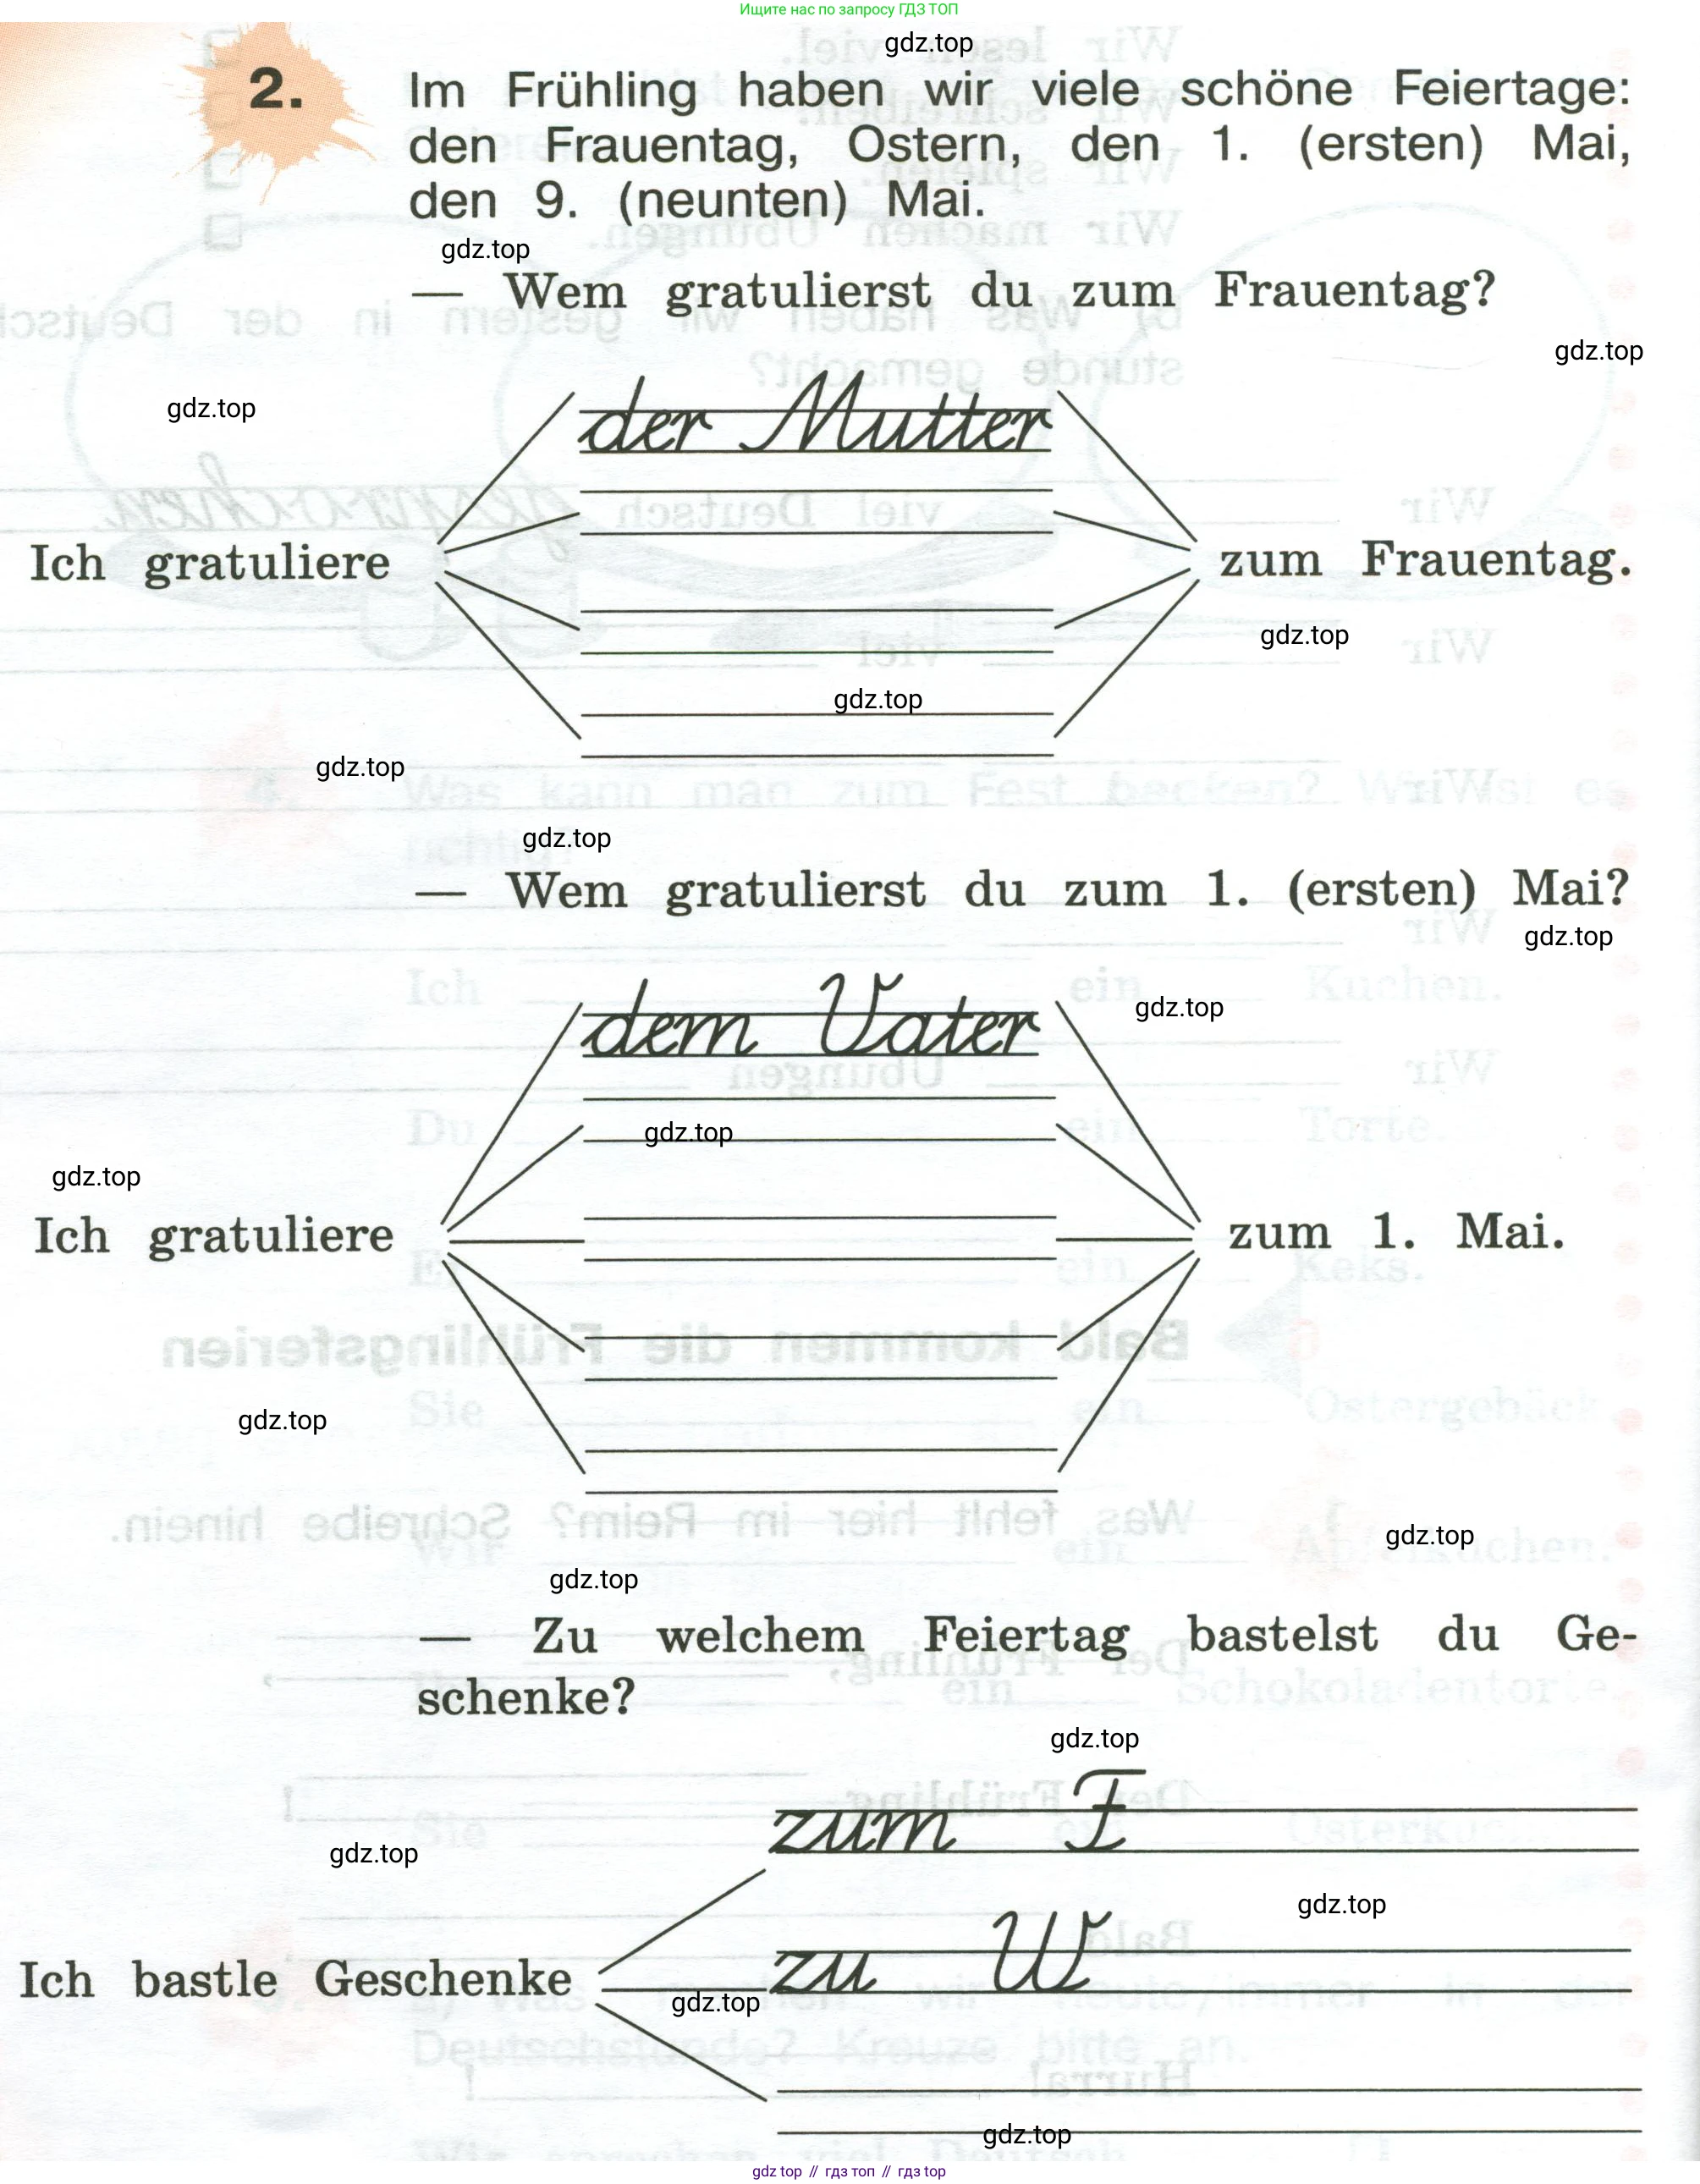 Ищите нас по запросу ГДЗ ТОП
gdz.top
2. Im Frühling haben wir viele schöne Feiertage:
den Frauentag, Ostern, den 1. (ersten) Mai,
den 9. (neunten) Mai.
gdz.top
— Wem gratulierst du zum Frauentag?
gdz.top
gdz.top
der Mutter
Ich gratuliere
zum Frauentag.
gdz.top
gdz.top
gdz.top
gdz.top
— Wem gratulierst du zum 1. (ersten) Mai?
gdz.top
dem Vater
gdz.top
gdz.top
gdz.top
Ich gratuliere
zum 1. Mai.
gdz.top
gdz.top
gdz.top
— Zu welchem Feiertag bastelst du Ge-
schenke?
gdz.top
zum F
gdz.top
gdz.top
zu W
Ich bastle Geschenke
gdz.top
gdz.top
gdz top // гдз топ // гдз top